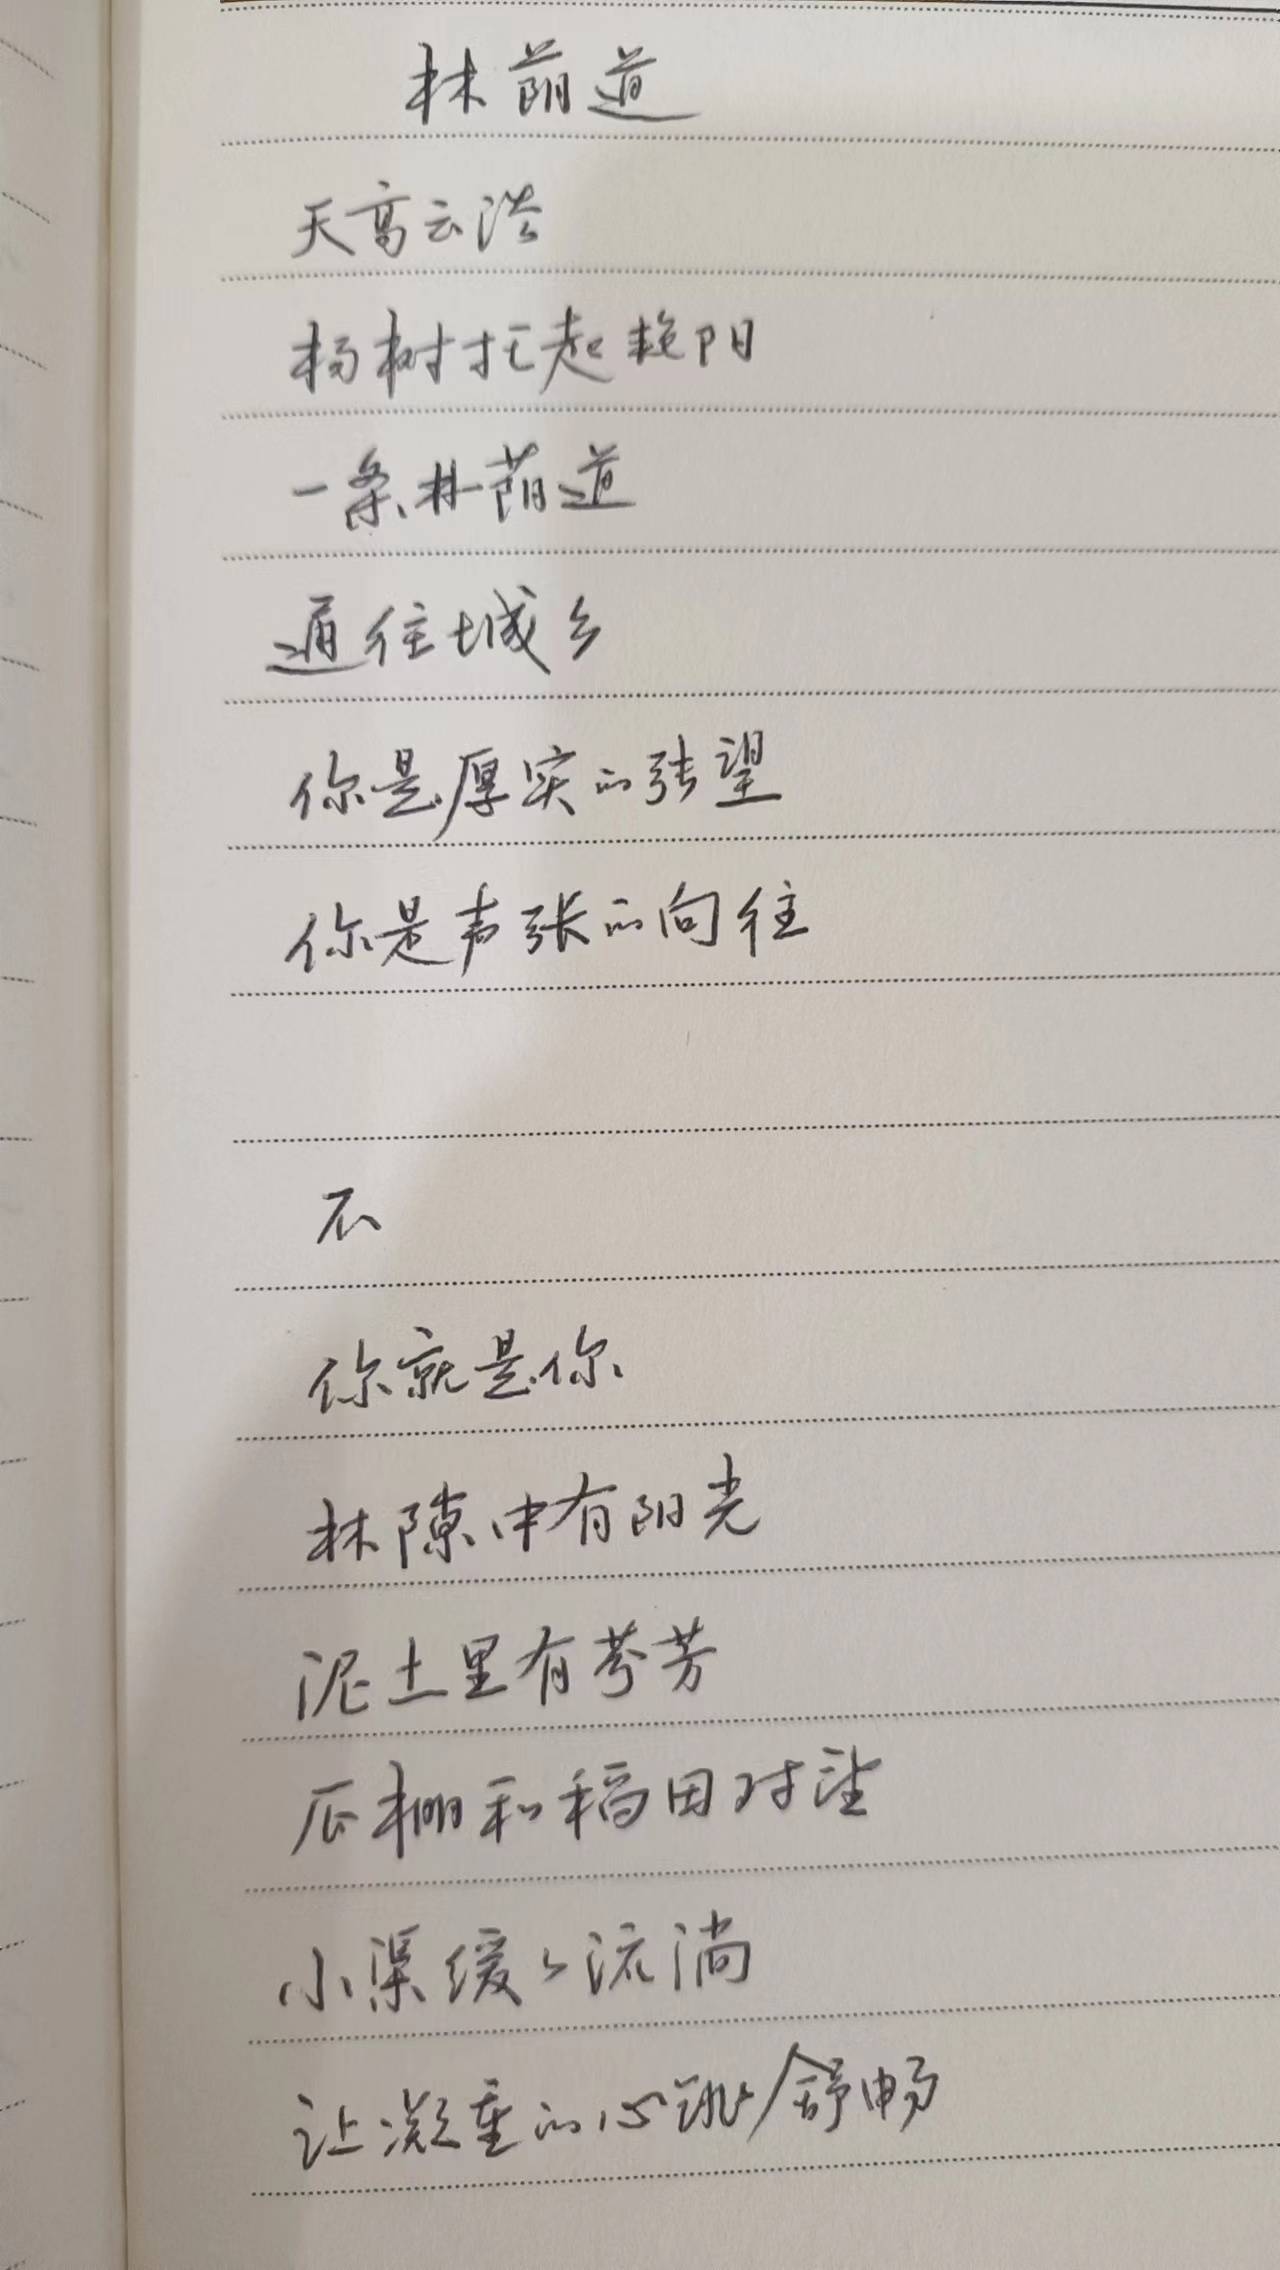 林荫道
天高云淡
杨树托起艳阳
一条林荫道
通往城乡
你是厚实的张望
你是声张的向往
不
你就是你
林隙中有阳光
泥土里有芬芳
瓜棚和稻田对望
小渠缓缓流淌
让凝重的心跳舒畅